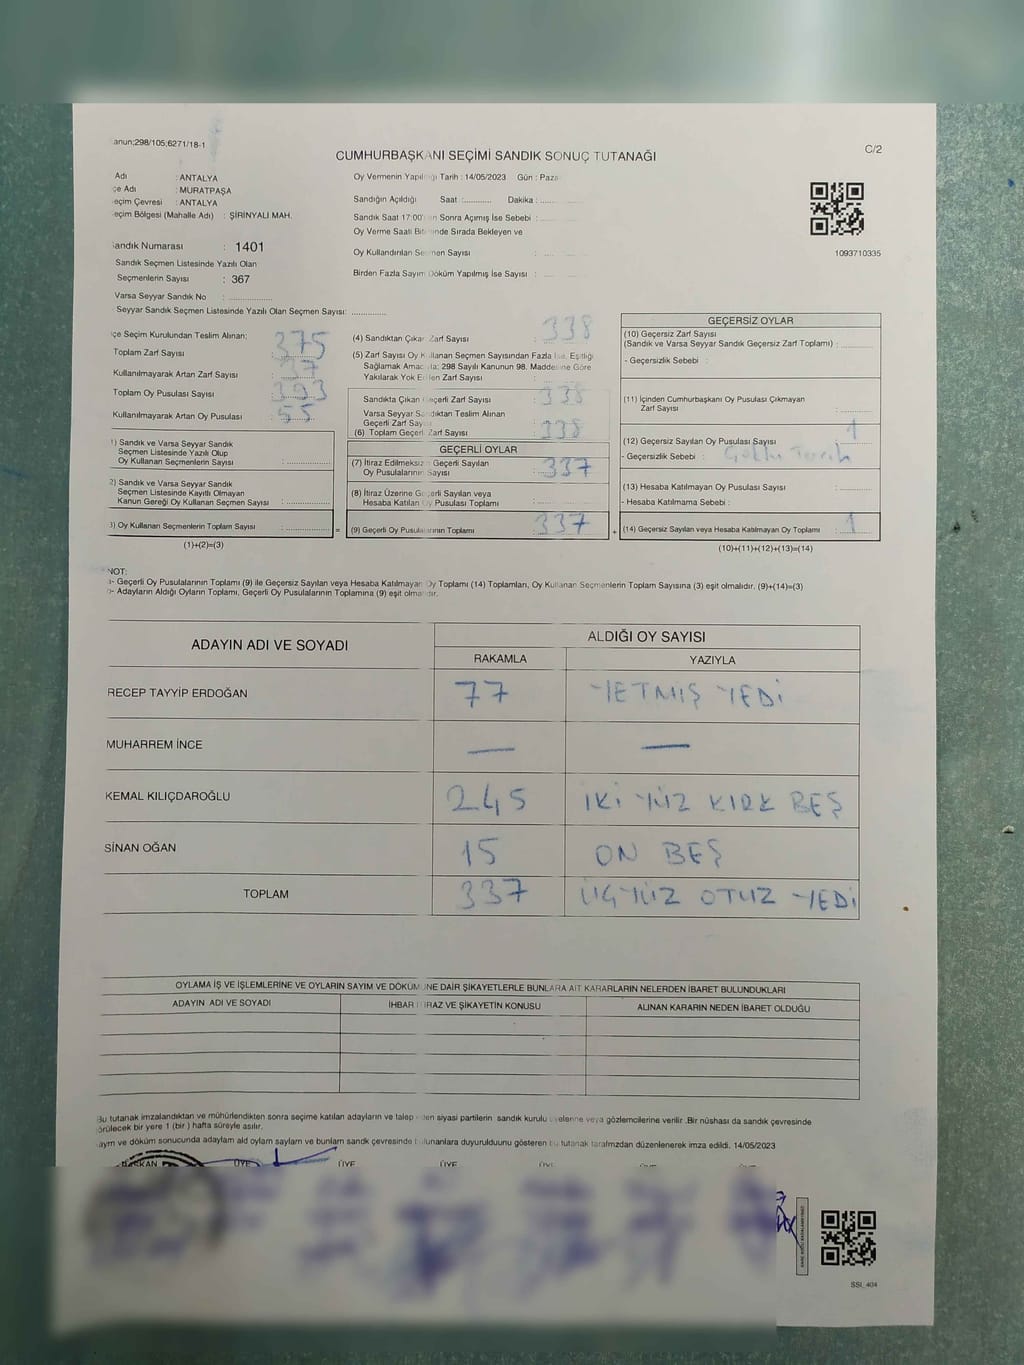 anun;298/105;6271/18-1
C/2
CUMHURBAŞKANI SEÇİMİ SANDIK SONUÇ TUTANAĞI
Adı : ANTALYA
çe Adı : MURATPAŞA
eçim Çevresi : ANTALYA
eçim Bölgesi (Mahalle Adı) : ŞİRİNYALI MAH.
Sandık Numarası : 1401
Sandık Seçmen Listesinde Yazılı Olan
Seçmenlerin Sayısı : 367
Varsa Seyyar Sandık No : ....................
Seyyar Sandık Seçmen Listesinde Yazılı Olan Seçmen Sayısı: ...............
Oy Vermenin Yapıldığı Tarih : 14/05/2023 Gün : Paza
Sandığın Açıldığı Saat :............ Dakika : ...............
Sandık Saat 17:00' Sonra Açımış İse Sebebi : ...............
Oy Verme Saati Bitiminde Sırada Bekleyen ve
Oy Kullandırılan Seçmen Sayısı :
Birden Fazla Sayım Döküm Yapılmış İse Sayısı :
1093710335
çe Seçim Kurulundan Teslim Alınan:
Toplam Zarf Sayısı : 375
Kullanılmayarak Artan Zarf Sayısı : 37
Toplam Oy Pusulası Sayısı : 393
Kullanılmayarak Artan Oy Pusulası : 55
1) Sandık ve Varsa Seyyar Sandık
Seçmen Listesinde Yazılı Olup
Oy Kullanan Seçmenlerin Sayısı : ...............
2) Sandık ve Varsa Seyyar Sandık
Seçmen Listesinde Kayıtlı Olmayan
Kanun Gereği Oy Kullanan Seçmen Sayısı : ...............
3) Oy Kullanan Seçmenlerin Toplam Sayısı : ............... =
(1)+(2)=(3)
(4) Sandıktan Çıkan Zarf Sayısı : 338
(5) Zarf Sayısı Oy Kullanan Seçmen Sayısından Fazla İse, Eşitliği
Sağlamak Amacıyla; 298 Sayılı Kanunun 98. Maddesine Göre
Yakılarak Yok Edilen Zarf Sayısı :
Sandıkta Çıkan Geçerli Zarf Sayısı : 338
Varsa Seyyar Sandıktan Teslim Alınan
Geçerli Zarf Sayısı
(6) Toplam Geçerli Zarf Sayısı : 338
GEÇERLİ OYLAR
(7) İtiraz Edilmeksizin Geçerli Sayılan
Oy Pusulalarının Sayısı : 337
(8) İtiraz Üzerine Geçerli Sayılan veya
Hesaba Katılan Oy Pusulası Toplamı :
(9) Geçerli Oy Pusulalarının Toplamı : 337 +
GEÇERSİZ OYLAR
(10) Geçersiz Zarf Sayısı
(Sandık ve Varsa Seyyar Sandık Geçersiz Zarf Toplamı) : ............
- Geçersizlik Sebebi :
(11) İçinden Cumhurbaşkanı Oy Pusulası Çıkmayan
Zarf Sayısı : ............
(12) Geçersiz Sayılan Oy Pusulası Sayısı : 1
- Geçersizlik Sebebi :
(13) Hesaba Katılmayan Oy Pusulası Sayısı : ............
- Hesaba Katılmama Sebebi :
(14) Geçersiz Sayılan veya Hesaba Katılmayan Oy Toplamı : 1
(10)+(11)+(12)+(13)=(14)
NOT:
a- Geçerli Oy Pusulalarının Toplamı (9) ile Geçersiz Sayılan veya Hesaba Katılmayan Oy Toplamı (14) Toplamları, Oy Kullanan Seçmenlerin Toplam Sayısına (3) eşit olmalıdır. (9)+(14)=(3)
b- Adayların Aldığı Oyların Toplamı, Geçerli Oy Pusulalarının Toplamına (9) eşit olmalıdır.
ADAYIN ADI VE SOYADI
ALDIĞI OY SAYISI
RAKAMLA YAZIYLA
RECEP TAYYİP ERDOĞAN 77 YETMİŞ YEDİ
MUHARREM İNCE — —
KEMAL KILIÇDAROĞLU 245 İKİ YÜZ KIRK BEŞ
SİNAN OĞAN 15 ON BEŞ
TOPLAM 337 ÜÇ YÜZ OTUZ YEDİ
OYLAMA İŞ VE İŞLEMLERİNE VE OYLARIN SAYIM VE DÖKÜMÜNE DAİR ŞİKAYETLERLE BUNLARA AİT KARARLARIN NELERDEN İBARET BULUNDUKLARI
ADAYIN ADI VE SOYADI İHBAR İTİRAZ VE ŞİKAYETİN KONUSU ALINAN KARARIN NEDEN İBARET OLDUĞU
Bu tutanak imzalandıktan ve mühürlendikten sonra seçime katılan adayların ve talep eden siyasi partilerin sandık kurulu üyelerine veya gözlemcilerine verilir .Bir nüshası da sandık çevresinde
örülecek bir yere 1 (bir ) hafta süreyle asılır.
ayım ve döküm sonucunda adaylam ald oylam saylam ve bunlam sandk çevresinde bulunanlara duyurulduunu gösteren bu tutanak tarafmzdan düzenlenerek imza edildi. 14/05/2023
BAŞKAN ÜYE ÜYE ÜYE ÜYE ÜYE ÜYE
SSI_404